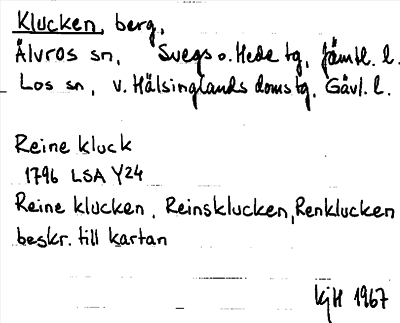 Klucken, berg,
Älvros sn, Svegs o. Hede tg, Jämtl. l.
Los sn, v. Hälsinglands domstg, Gävl. l.
Reine kluck
1796 LSA Y24
Reine klucken, Reinsklucken, Renklucken
beskr. till kartan
KjH 1967